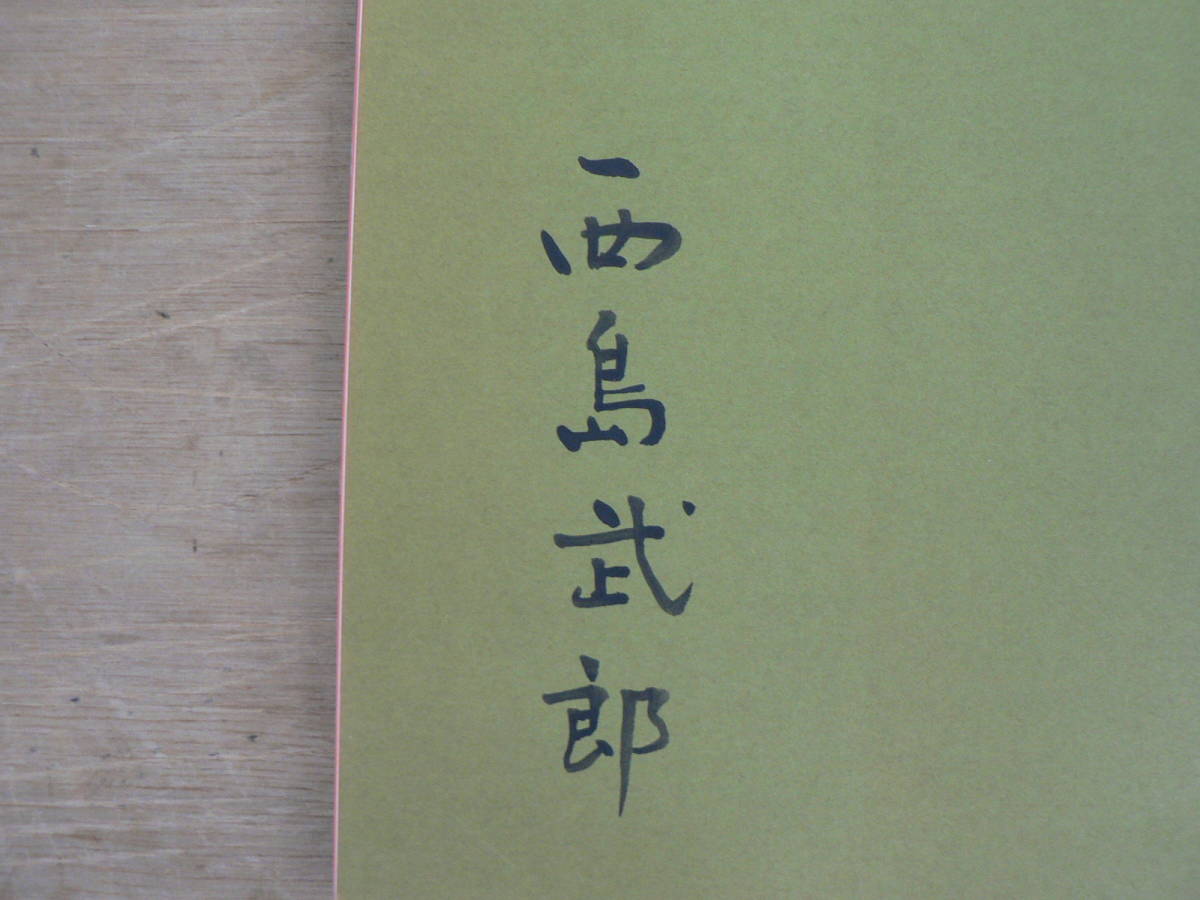 西島武郎